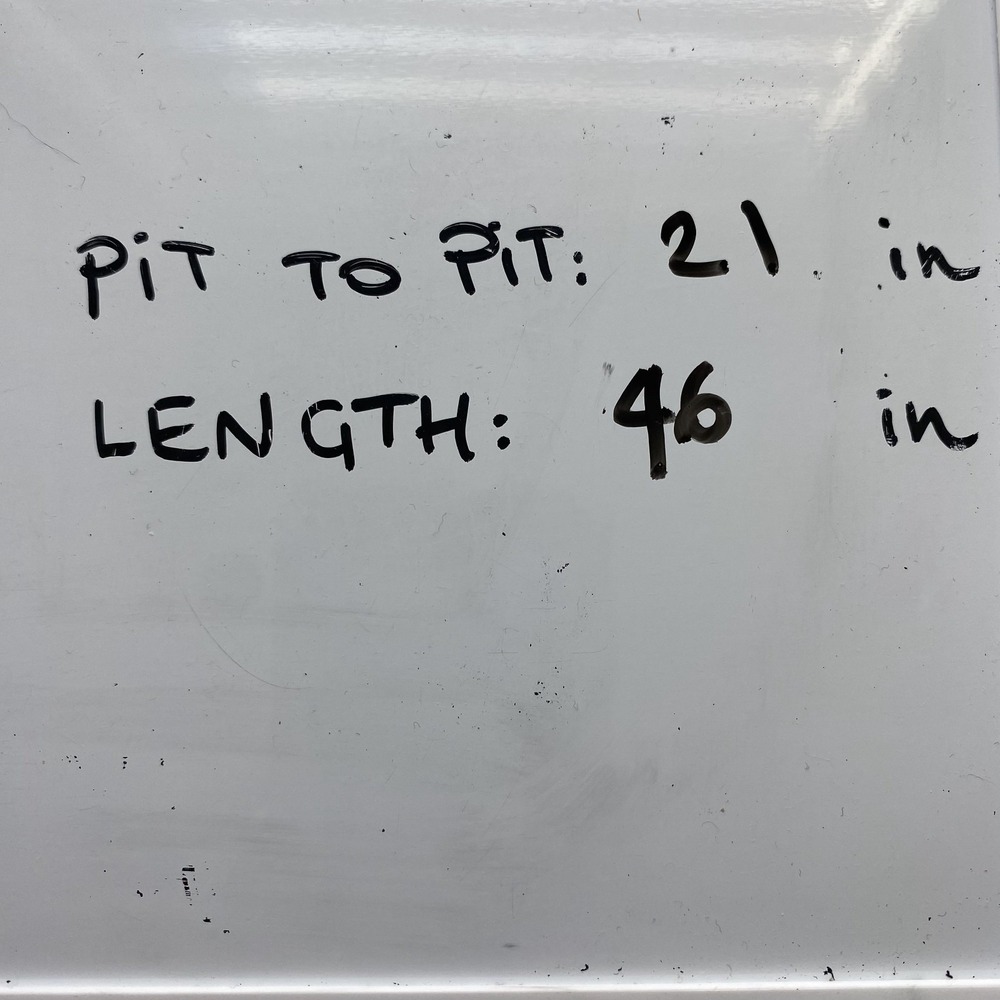 PiT TO PiT: 21 in
LENGTH: 46 in